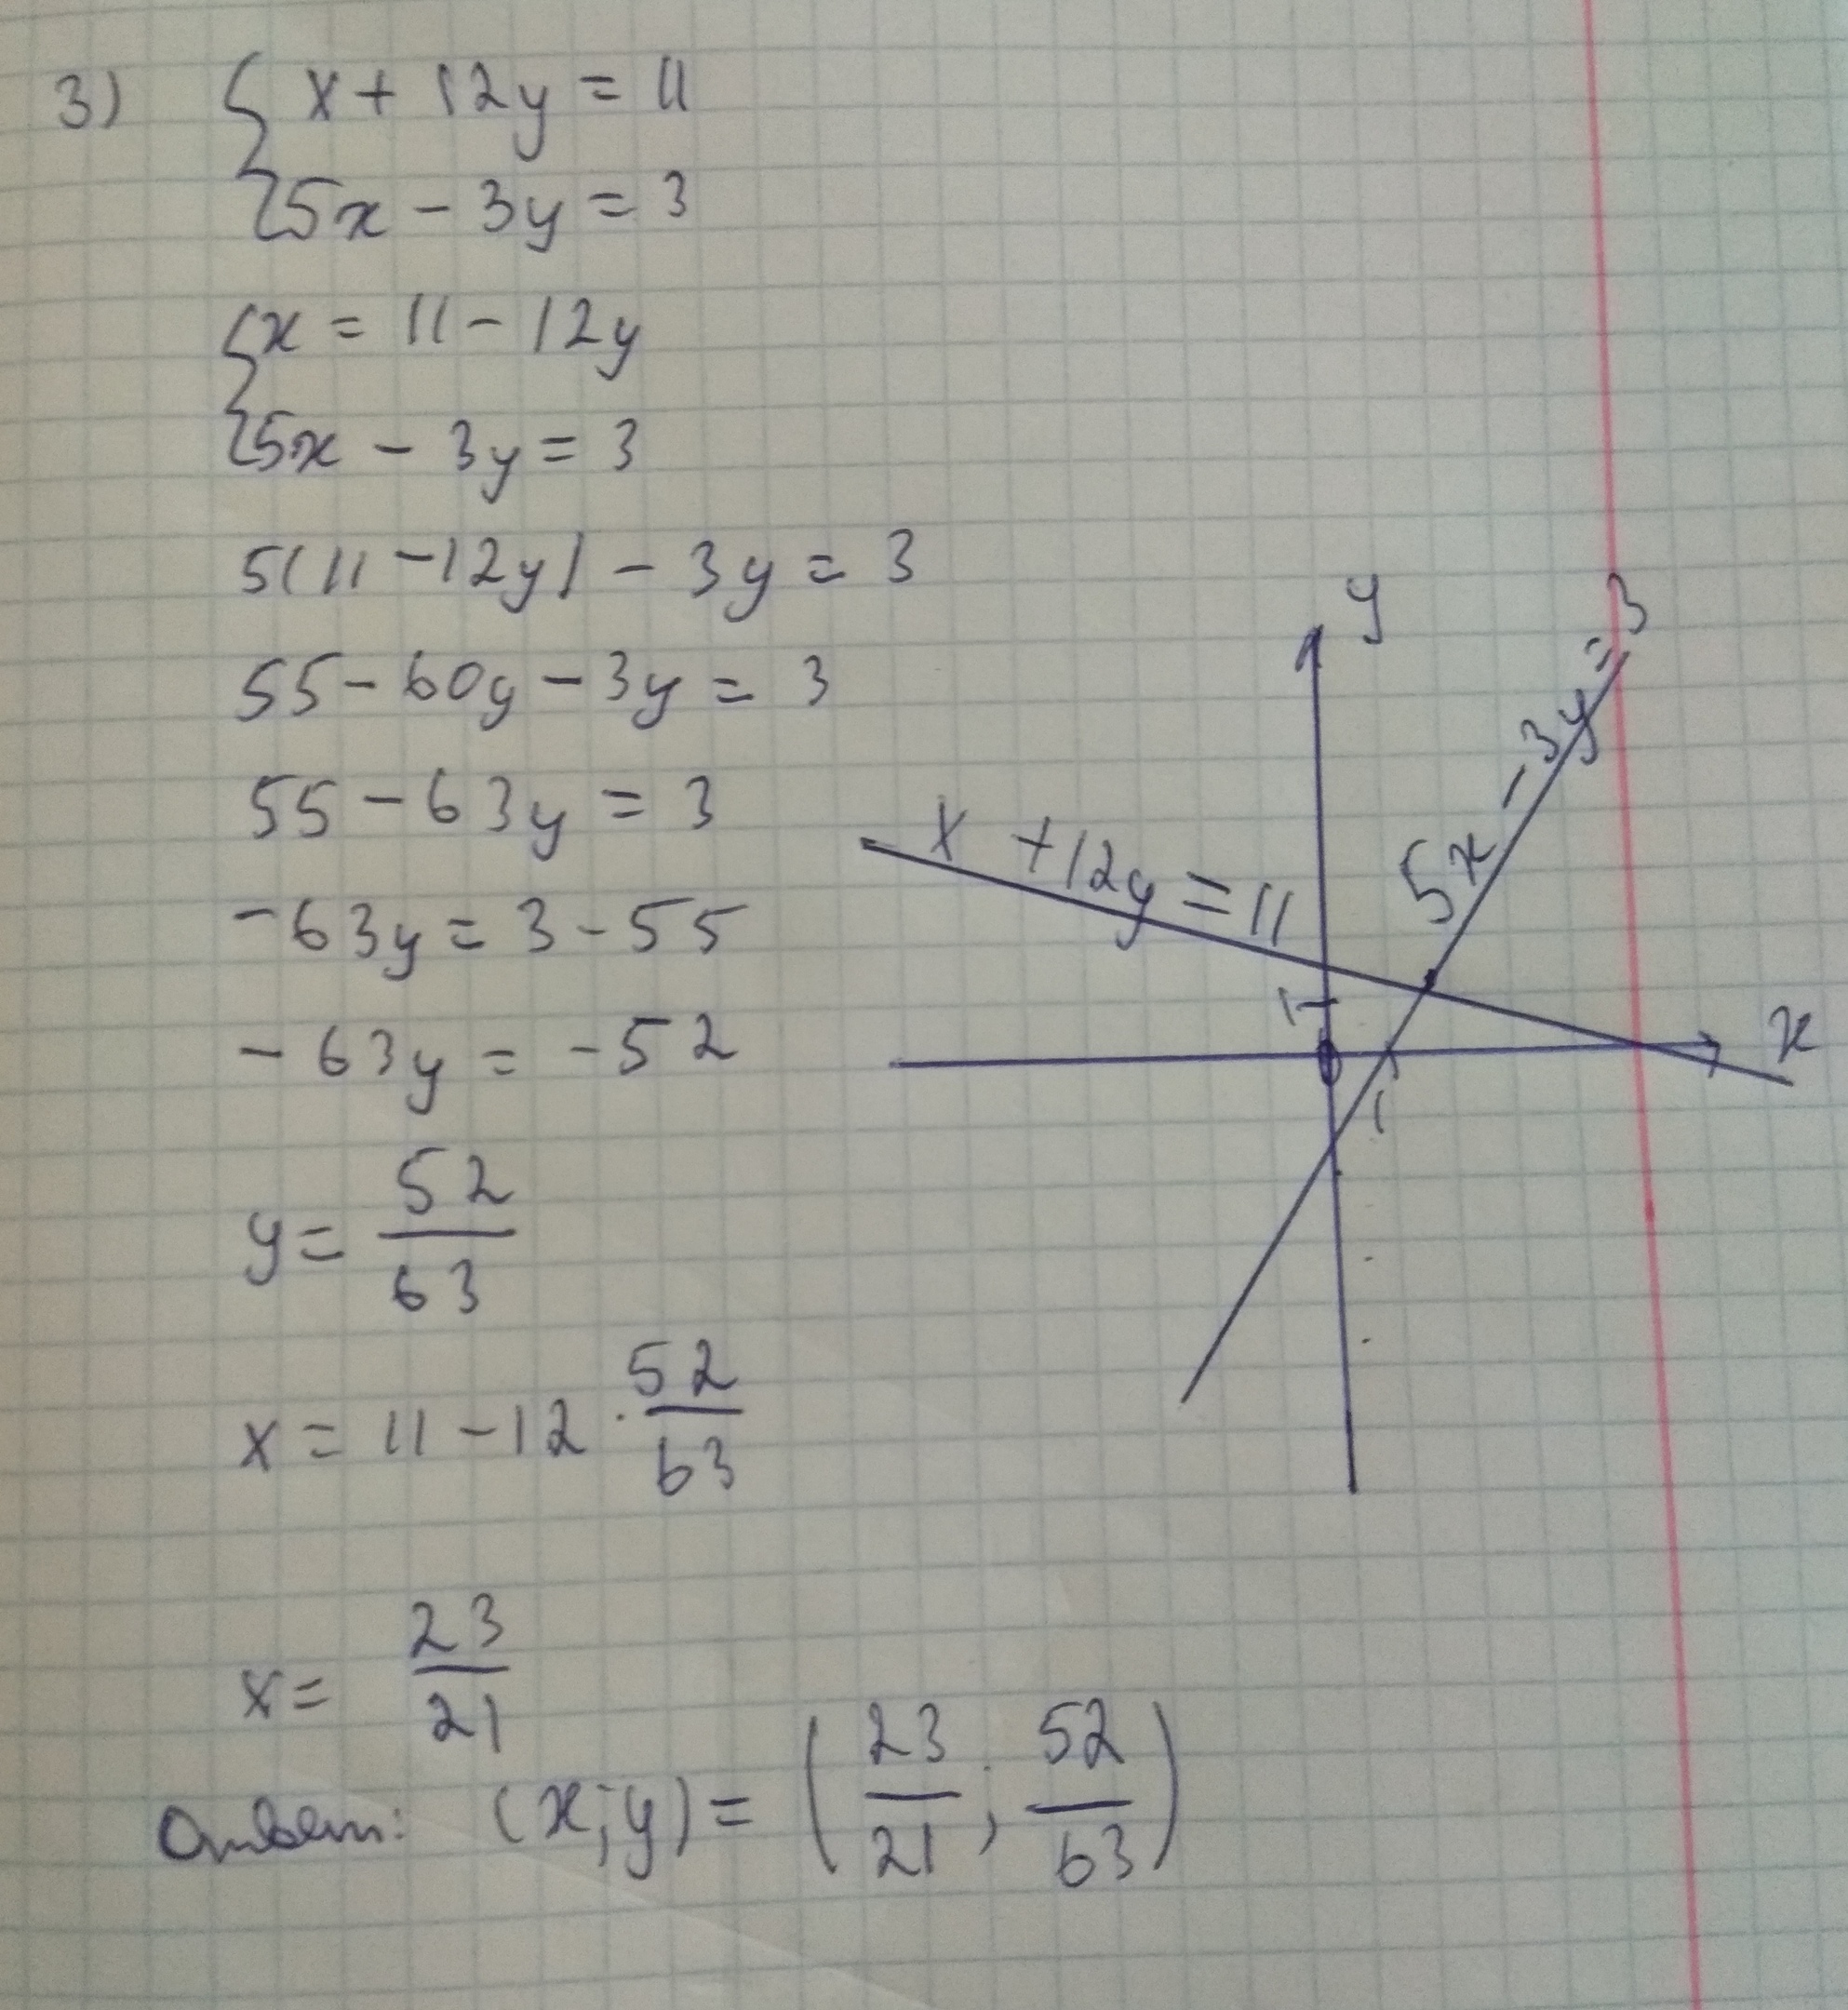 3) { x + 12y = 11
5x - 3y = 3
{ x = 11 - 12y
5x - 3y = 3
5(11 - 12y) - 3y = 3
55 - 60y - 3y = 3
55 - 63y = 3
-63y = 3 - 55
-63y = -52
y = 52/63
x = 11 - 12 · 52/63
x = 23/21
Ответ: (x; y) = (23/21; 52/63)
y
5x - 3y = 3
x + 12y = 11
1
0
1
x